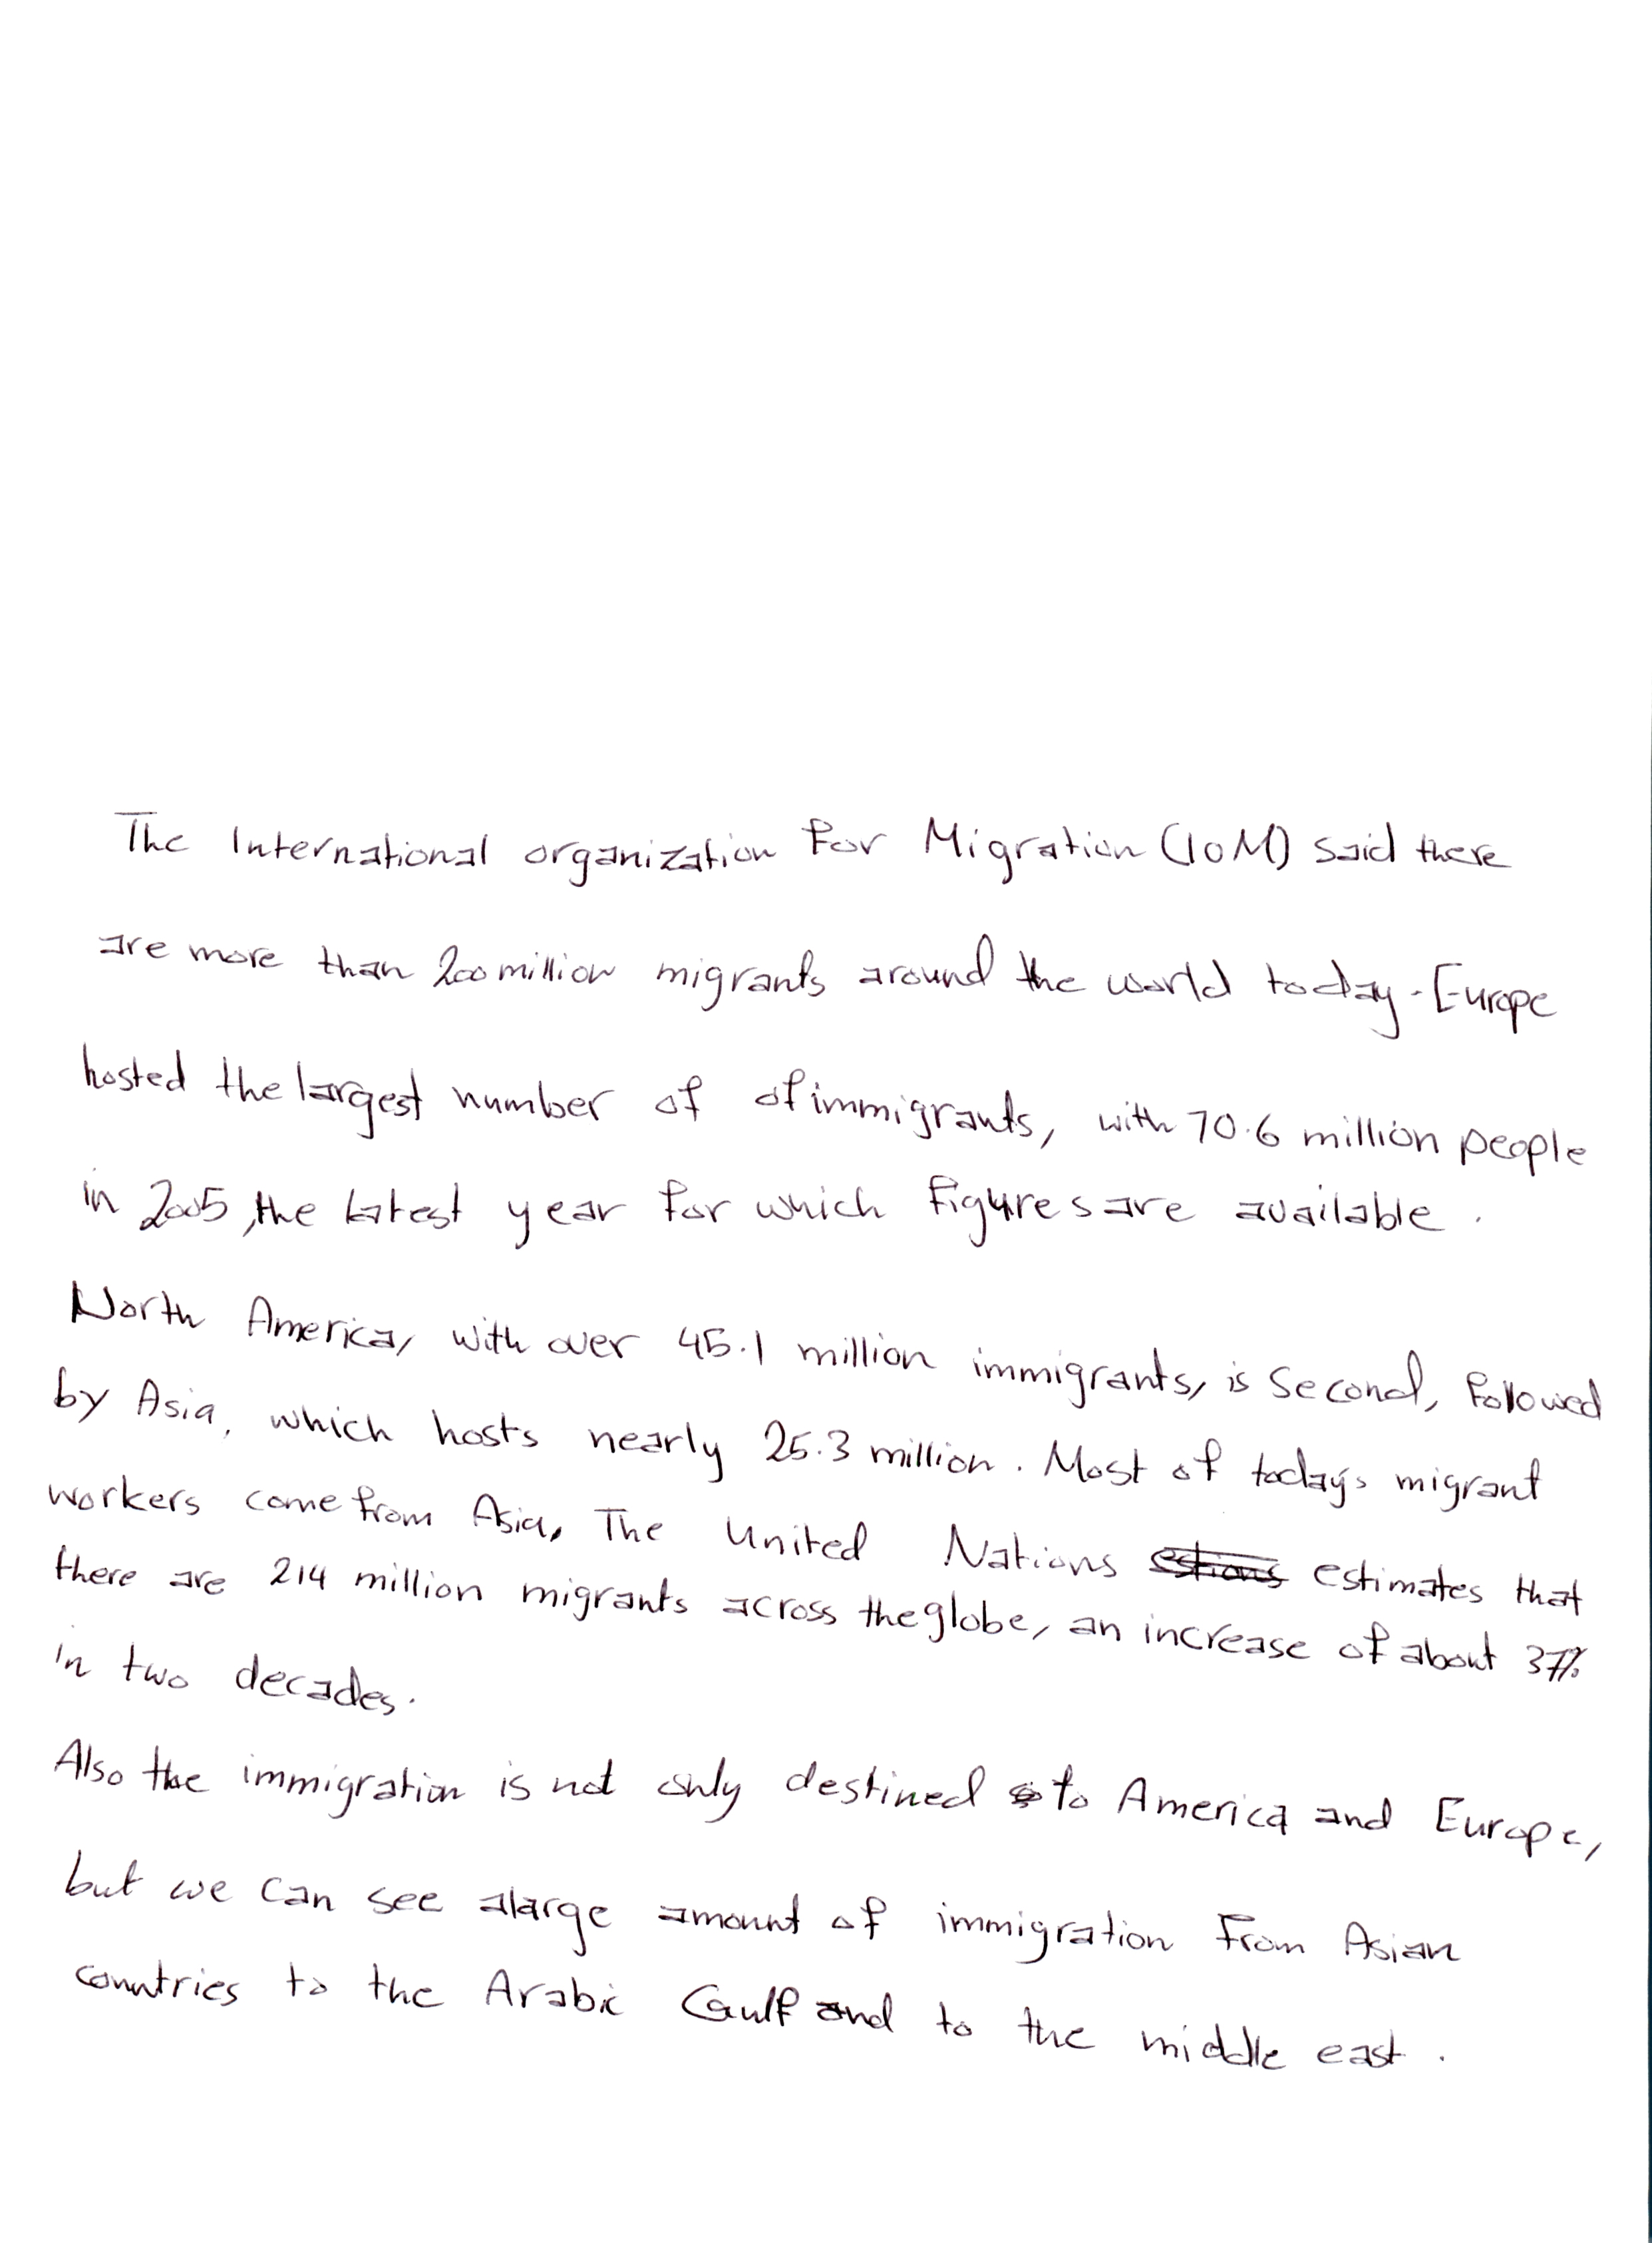 The International organization for Migration (IOM) said there
are more than 200 million migrants around the world today. Europe
hosted the largest number of of immigrants, with 70.6 million people
in 2005, the latest year for which figures are available.
North America, with over 45.1 million immigrants, is second, followed
by Asia, which hosts nearly 25.3 million. Most of today's migrant
workers come from Asia. The United Nations estimates that
there are 214 million migrants across the globe, an increase of about 37%
in two decades.
Also the immigration is not only destined to America and Europe,
but we can see alarge amount of immigration from Asian
countries to the Arabic Gulf and to the middle east.